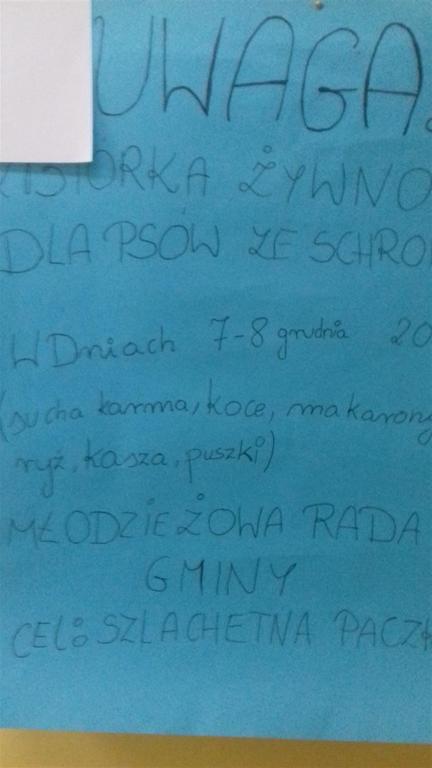 UWAGA
ZBIÓRKA ŻYWNO
DLA PSÓW ZE SCHRO
W Dniach 7-8 grudnia 20
(sucha karma, koce, makarony
ryż, kasza, puszki)
MŁODZIEŻOWA RADA
GMINY
CEL: SZLACHETNA PACZK